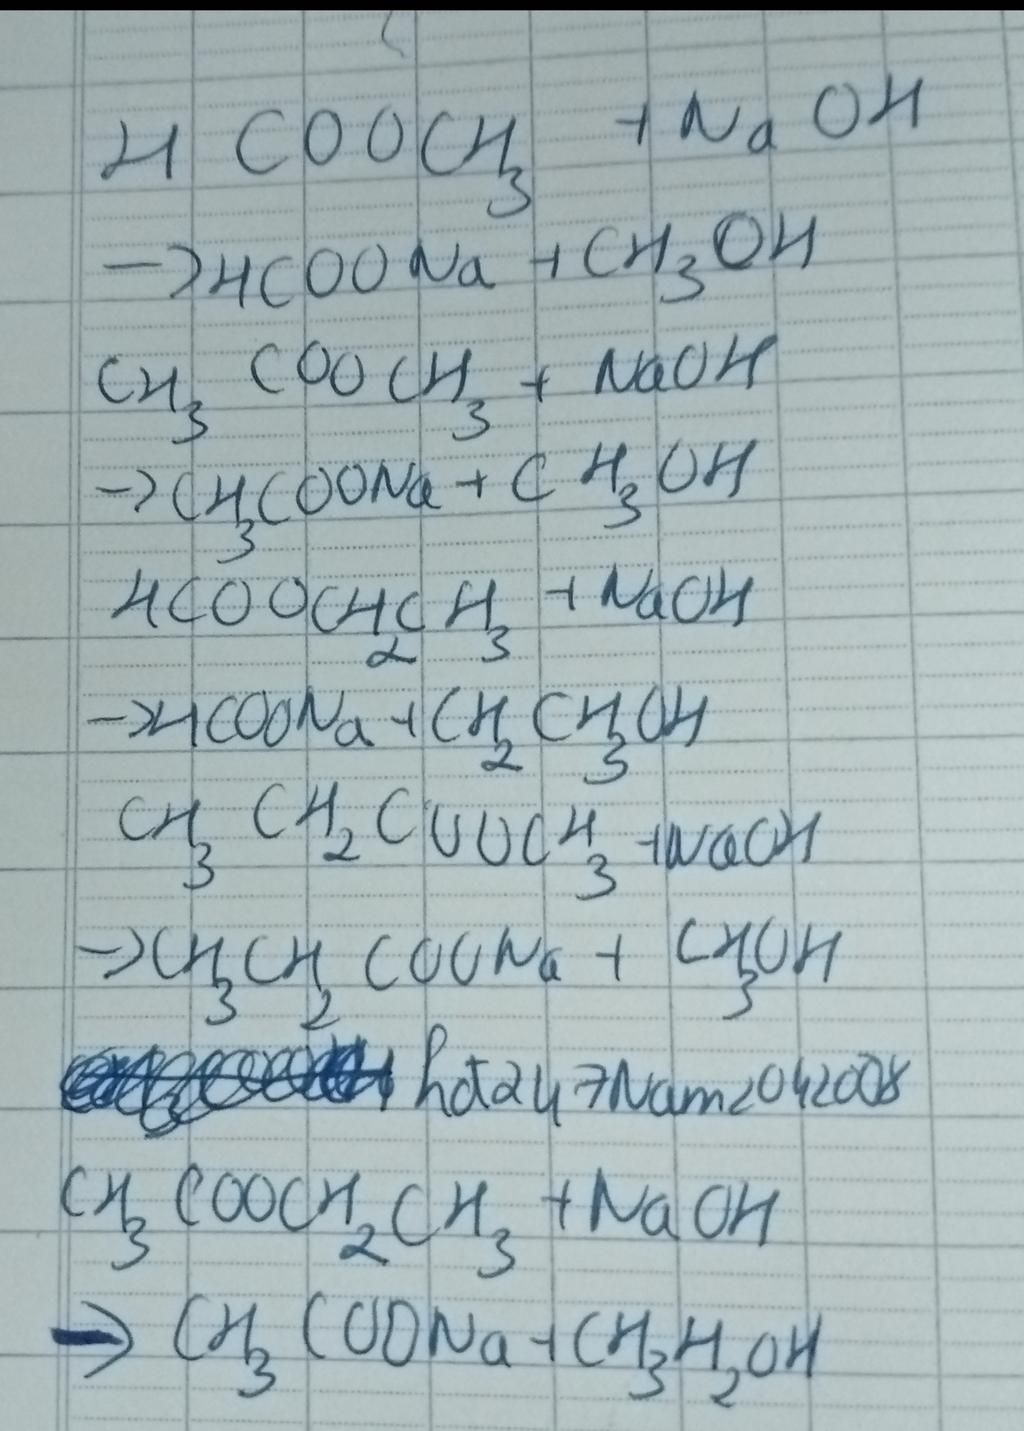 HCOOCH3 + NaOH
→HCOONa + CH3OH
CH3COOCH3 + NaOH
→CH3COONa + CH3OH
HCOOCH2CH3 + NaOH
→HCOONa + CH2CH3OH
CH3CH2COOCH3 + NaOH
→CH3CH2COONa + CH3OH
hdt247Nam2042008
CH3COOCH2CH3 + NaOH
→ CH3COONa + CH3H2OH